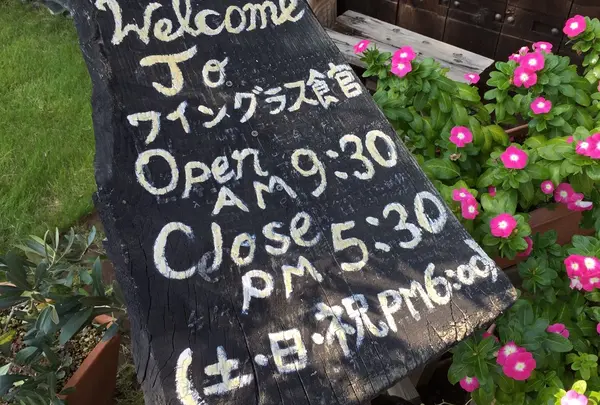 Welcome
To
ワイングラス食官
Open AM 9:30
Close PM 5:30
(土・日・祝PM6:00)